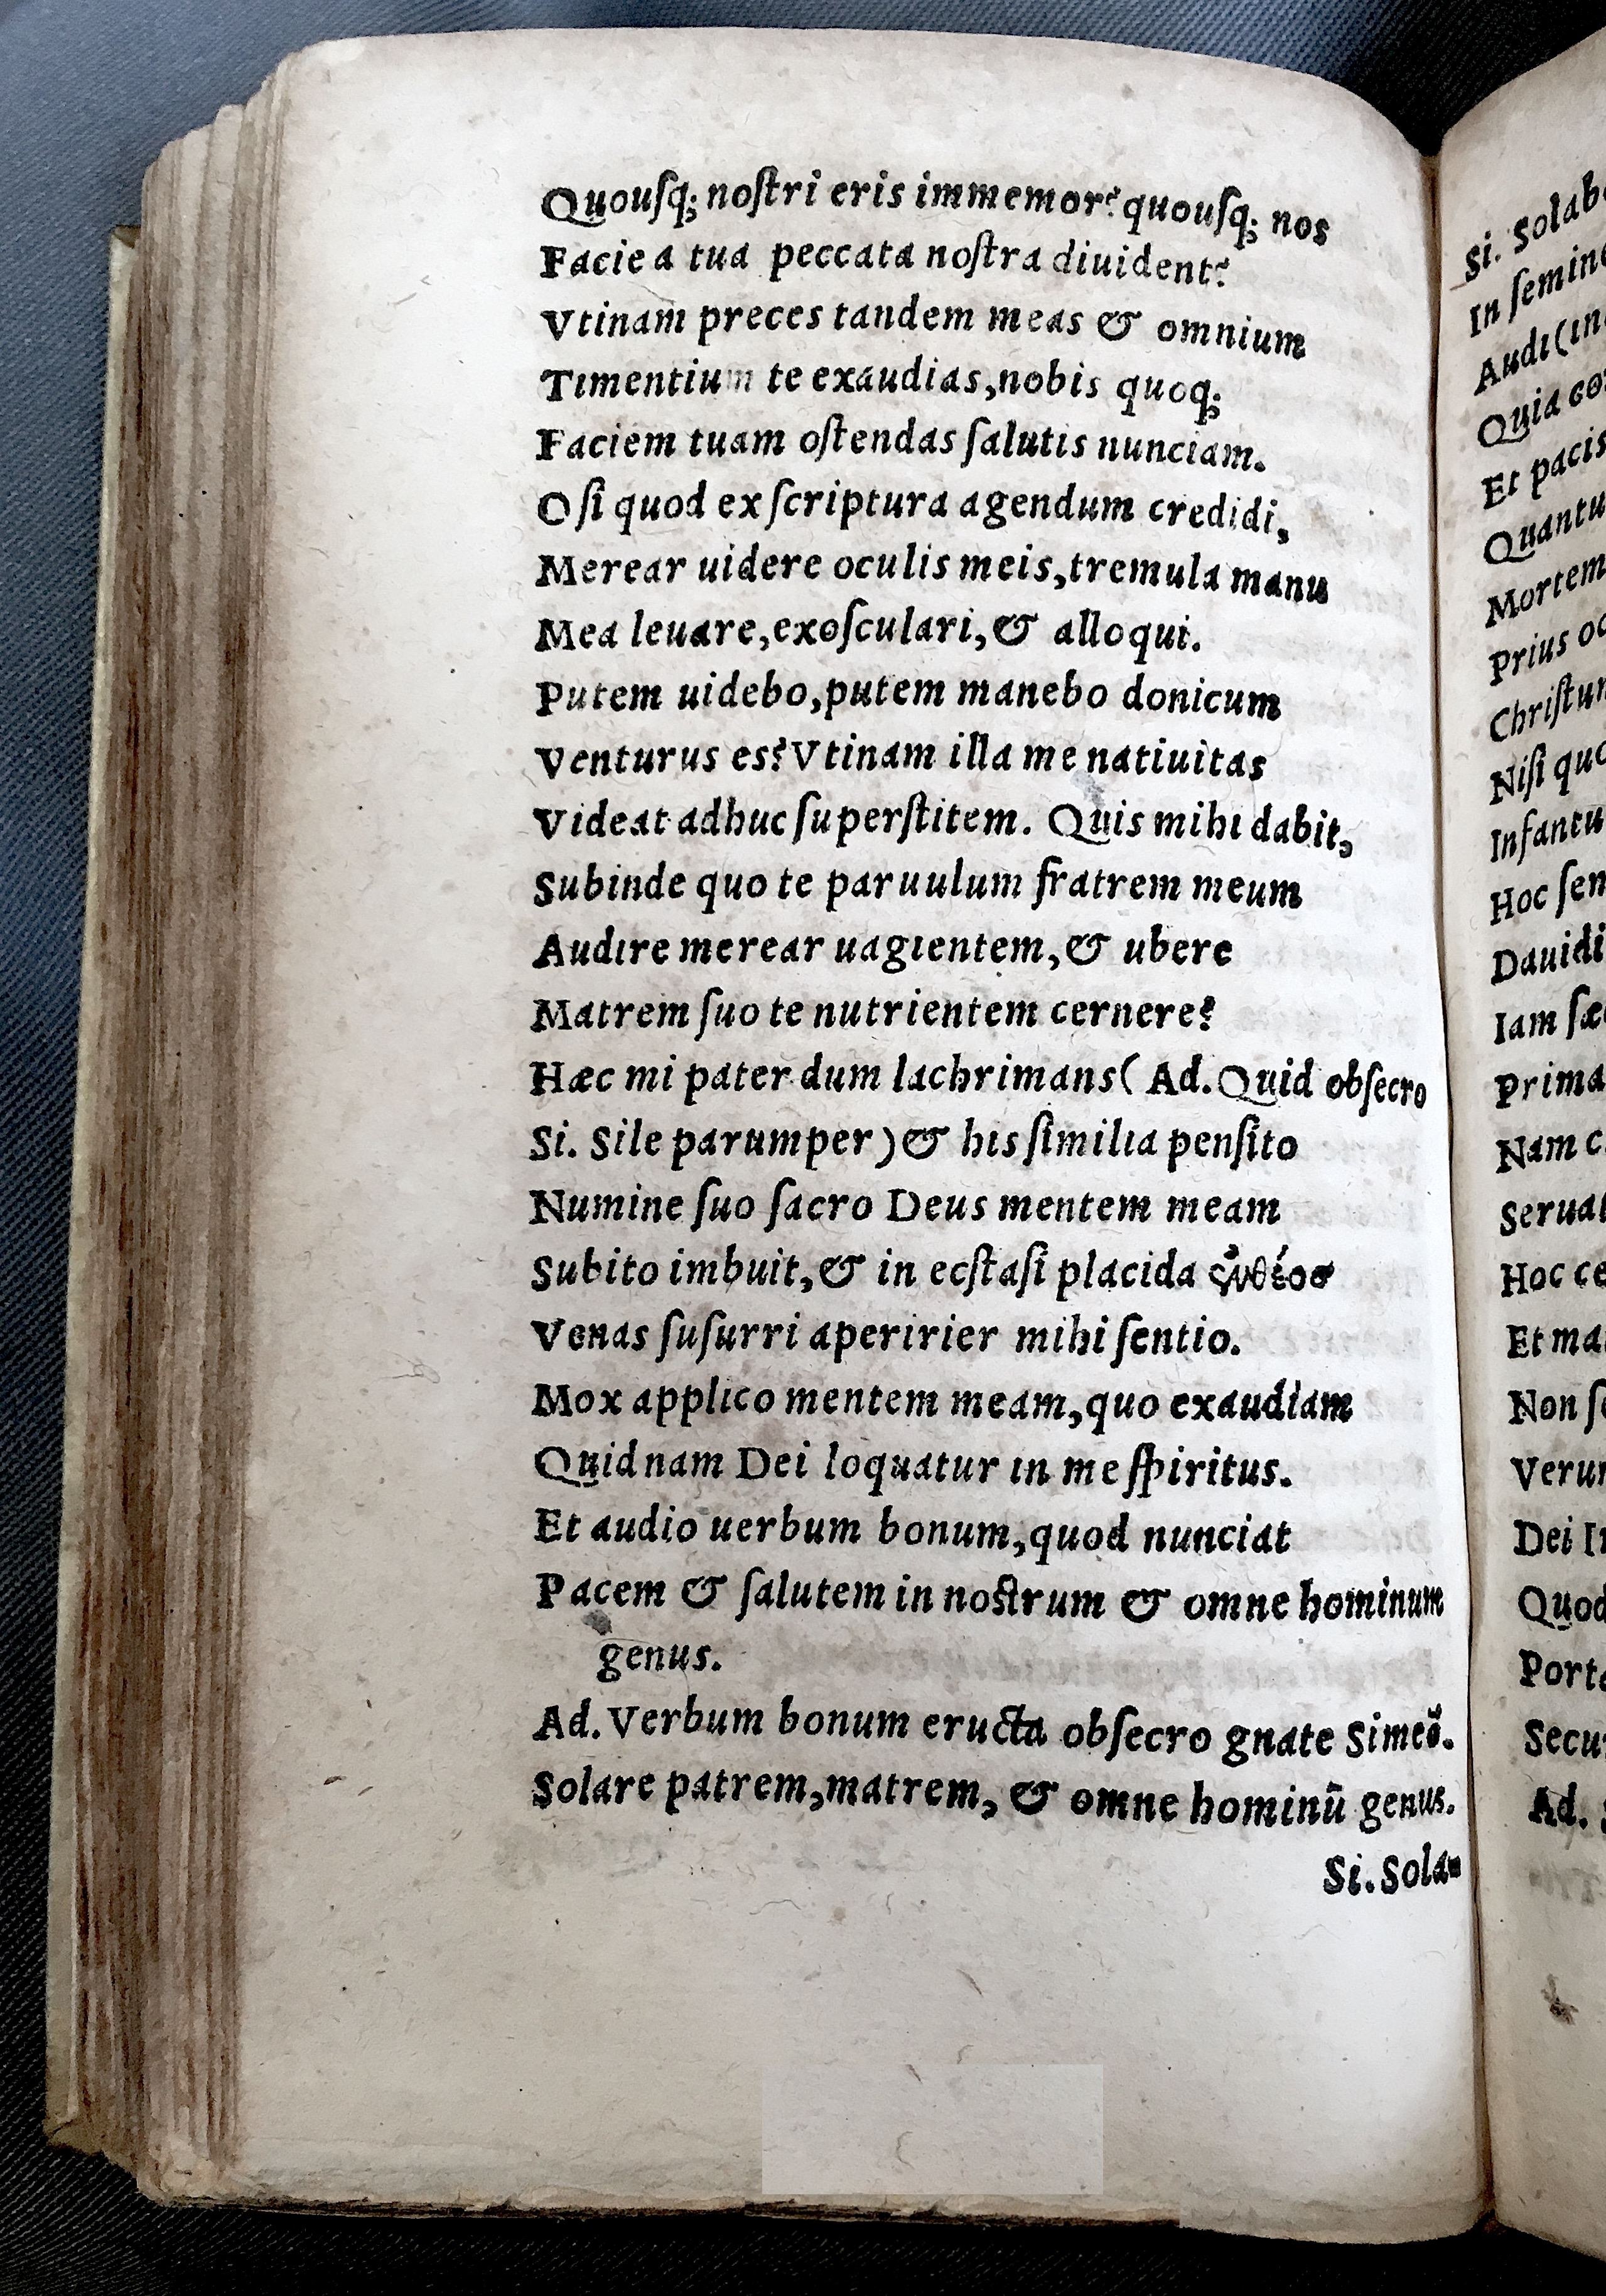 Quouſq; noſtri eris immemor? quouſq; nos
Facie a tua peccata noſtra diuident?
Vtinam preces tandem meas & omnium
Timentium te exaudias, nobis quoq;
Faciem tuam oſtendas ſalutis nunciam.
O ſi quod ex ſcriptura agendum credidi,
Merear uidere oculis meis, tremula manu
Mea leuare, exoſculari, & alloqui.
Putem uidebo, putem manebo donicum
Venturus es? Vtinam illa me natiuitas
Videat adhuc ſuperſtitem. Quis mihi dabit,
Subinde quo te paruulum fratrem meum
Audire merear uagientem, & ubere
Matrem ſuo te nutrientem cernere?
Hæc mi pater dum lachrimans ( Ad. Quid obſecro
Si. Sile parumper ) & his ſimilia penſito
Numine ſuo ſacro Deus mentem meam
Subito imbuit, & in ecſtaſi placida
Venas ſuſurri aperirier mihi ſentio.
Mox applico mentem meam, quo exaudiam
Quidnam Dei loquatur in me ſpiritus.
Et audio uerbum bonum, quod nunciat
Pacem & ſalutem in noſtrum & omne hominum
genus.
Ad. Verbum bonum eructa obſecro gnate Simeō.
Solare patrem, matrem, & omne hominū genus.
Si. Sola-
Si. Solab
In ſemine
Audi (in
Quia
Et pacis
Quantu
Mortem
Prius oc
Chriſtum
Niſi quo
Infantu
Hoc ſem
Dauidi
Iam ſæ
Prima
Nam c
Seruat
Hoc ce
Et ma
Non ſe
Verum
Dei
Quod
Porte
Secu
Ad.